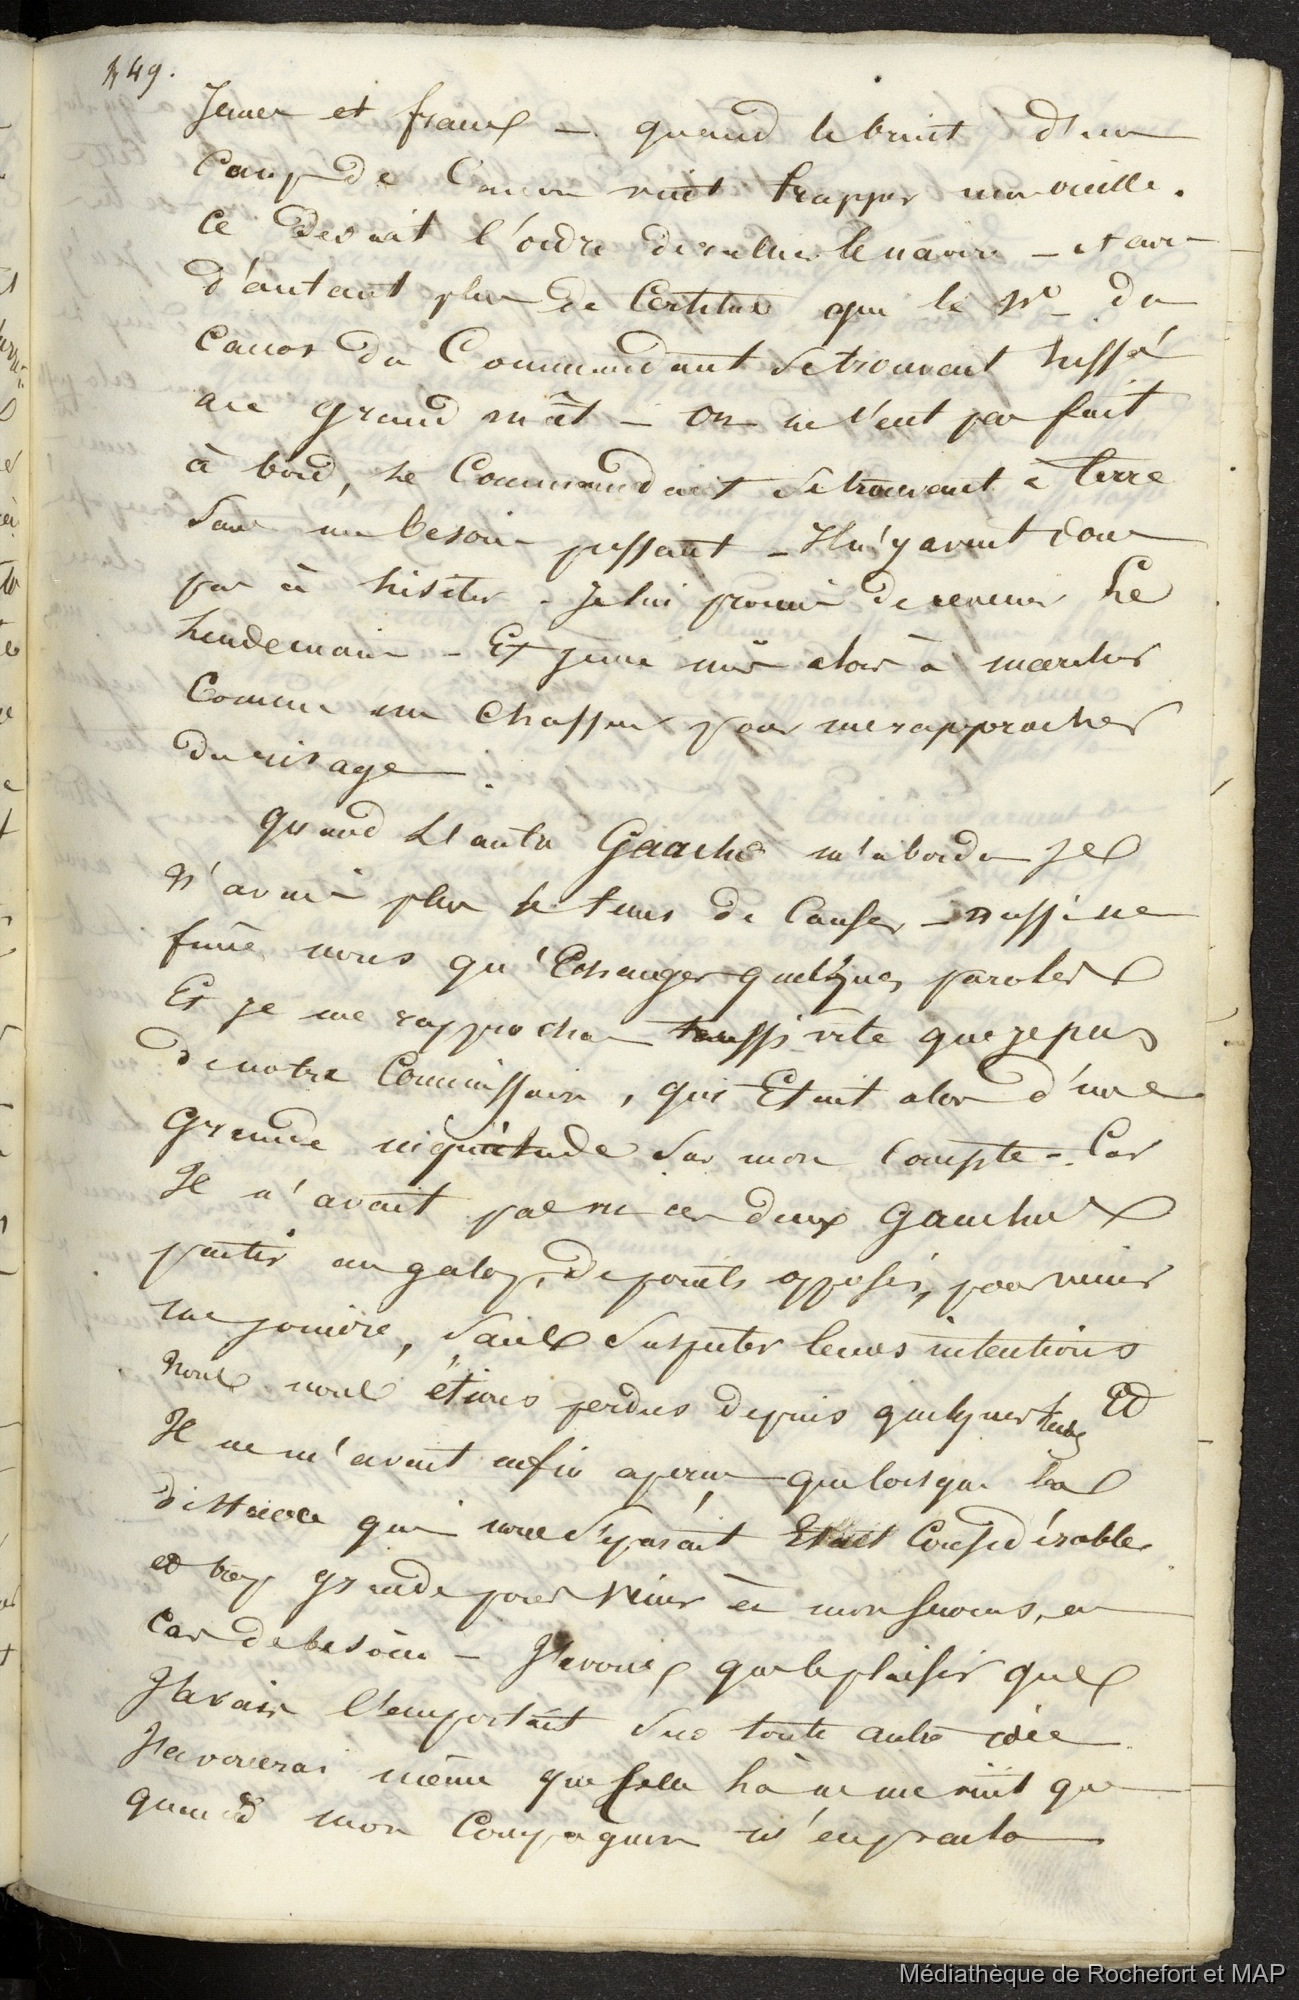 149.
Jeunes et francs — quand le bruit d'un
Coup de Canon vint frapper mon oreille.
Ce devait l'ordre de rallier le navire — et avec
d'autant plus de Certitude que le No du
Canot du Commandant se trouvant hissé
au grand mât — on ne l'eut pas fait
à bord, le Commandant se trouvant à terre
sans un besoin pressant — Il n'y avait donc
pas à hésiter. Je lui promis de revenir Le
lendemain — Et je me mis alors à marcher
Comme un Chasseur pour me rapprocher
du rivage.
Quand l'autre Gaucho m'aborda je
N'avais plus le tems de Causer — Aussi ne
fimes nous qu'Echanger quelques paroles
Et je me rapprochai aussi vite que je pus
de notre Commissaire, qui Etait alors d'une
Grande inquiétude sur mon Compte — Car
Il n'avait pas vu ces deux Gauchos
partir au galop, de points opposés, pour venir
me joindre, sans suspecter leurs intentions
Nous nous étions perdus depuis quelques tems Et
Il ne m'avait enfin aperçu que lorsque la
distance qui nous séparait Etait Considérable
et trop grande pour venir à mon secours, en
Cas de besoin — J'avoue que le plaisir que
J'avais l'emportait sur toute autre idée
J'avouerai même que celle là ne me vint que
quand mon Compagnon m'en parla
Médiathèque de Rochefort et MAP